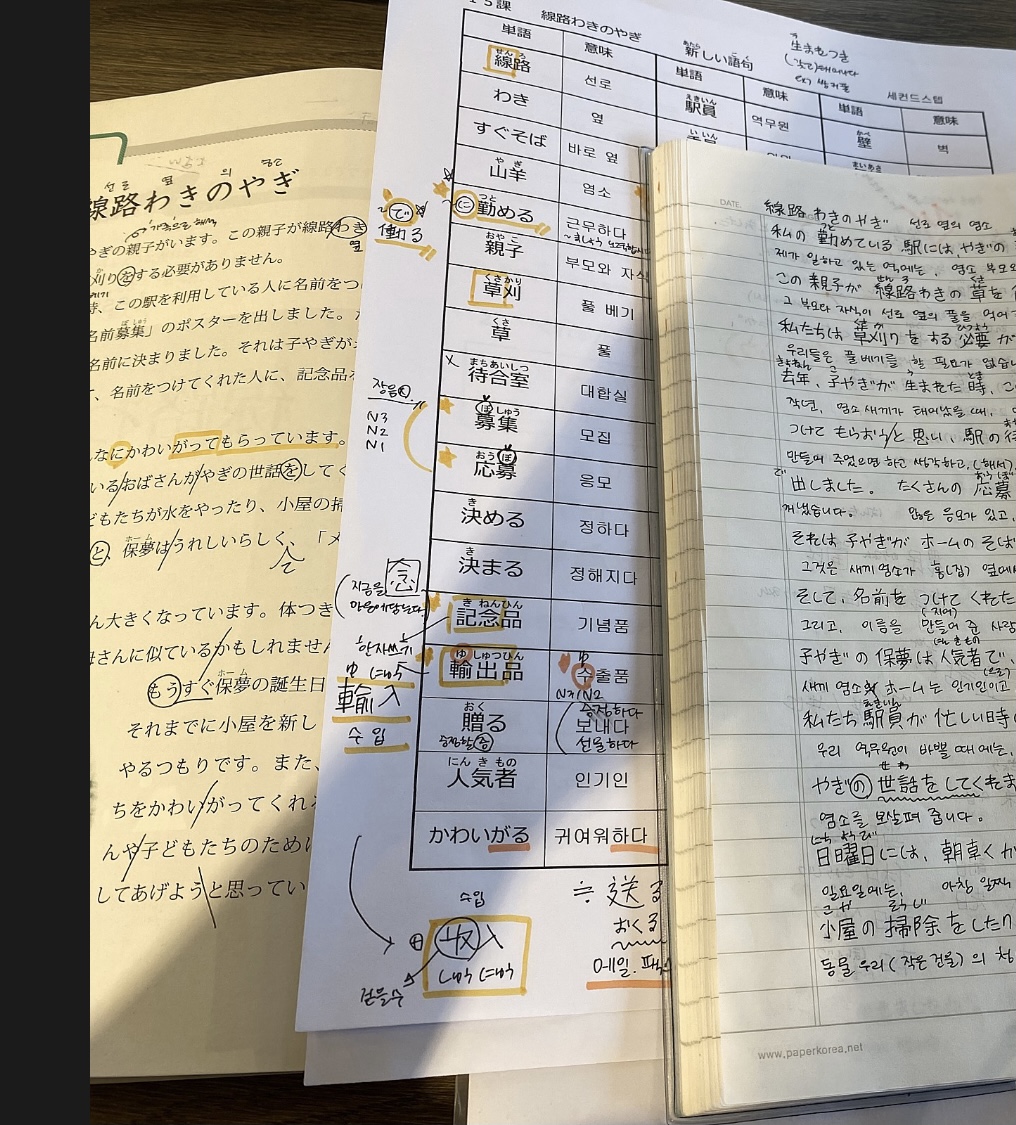 線路わきのやぎ
선로 옆 의 염소
やぎの親子がいます。この親子が線路わき
옆
刈りをする必要がありません。
時、この駅を利用している人に名前をつ
名前募集」のポスターを出しました。
名前に決まりました。それは子やぎが
、名前をつけてくれた人に、記念品を
なにかわいがってもらっています。
いるおばさんがやぎの世話をしてく
どもたちが水をやったり、小屋の掃
と、保夢はうれしいらしく、「メ
ん大きくなっています。体つき
母さんに似ているかもしれません
もうすぐ保夢の誕生日
それまでに小屋を新し
やるつもりです。また、
ちをかわいがってくれ
んや子どもたちのために
してあげようと思ってい
15課 線路わきのやぎ 新しい語句
生まれつき
세컨드스텝
単語 意味 単語 意味 単語 意味
線路 せんろ 선로 駅員 えきいん 역무원 壁 かべ 벽
わき 옆
すぐそば 바로 옆
山羊 やぎ 염소
に 勤める つとめる 근무하다
で 働る
親子 おやこ 부모와 자식
草刈 くさかり 풀 베기
草 くさ 풀
待合室 まちあいしつ 대합실
募集 ぼしゅう 모집
応募 おうぼ 응모
장음
N3
N2
N1
決める き 정하다
決まる き 정해지다
記念品 きねんひん 기념품
念
한자쓰기
輸出品 ゆしゅつひん 수출품
N1/N2
ゆ にゅう
輸入
수입
贈る おく 증정하다
보내다
선물하다
人気者 にんきもの 인기인
かわいがる 귀여워하다
수입
収入
しゅうにゅう
걷을수
≒ 送る
おくる
메일.팩스
DATE
線路わきのやぎ 선로 옆의 염소
私の勤めている駅には、やぎの
제가 일하고 있는 역에는, 염소 부모와
この親子が線路わきの草を
그 부모와 자식이 선로 옆의 풀을 먹어
私たちは草刈りをする必要が
우리들은 풀베기를 할 필요가 없습니
去年、子やぎが生まれた時、こ
작년, 염소 새끼가 태어났을 때,
つけてもらおうと思い、駅の待
만들어 주었으면 하고 생각하고,(해서)
出しました。たくさんの応募
많은 응모가 있고,
それは子やぎがホームのそば
그것은 새끼 염소가 홈(집) 옆에
そして、名前をつけてくれた
그리고, 이름을 만들어 준 사람
(지어)
子やぎの保夢は人気者で、
새끼 염소 ホーム는 인기인이고
私たち駅員が忙しい時
우리 역무원이 바쁠 때에는,
やぎの世話をしてくれま
염소를 보살펴 줍니다.
日曜日には、朝早くか
일요일에는, 아침 일찍
小屋の掃除をしたり
동물 우리(작은 건물)의 청
www.paperkorea.net